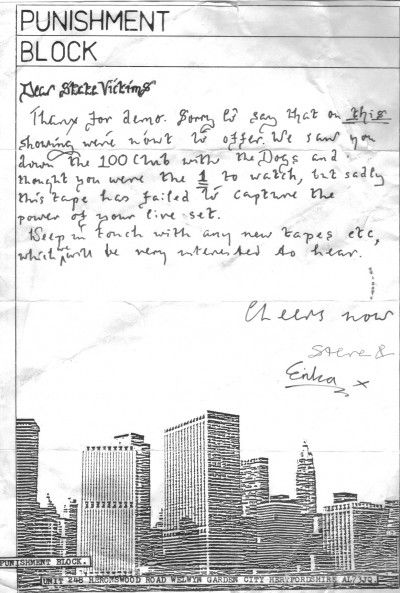 PUNISHMENT
BLOCK
Dear State Victims
Thanx for demo. Sorry to say that on this
showing we're nowt to offer. We saw you
down the 100 Club with the Dogs and
thought you were the 1 to watch, but sadly
this tape has failed to capture the
power of your live set.
Keep in touch with any new tapes etc,
which we will be very interested to hear.
Cheers now
Steve &
Erika x
PUNISHMENT BLOCK.
UNIT 248 HERONSWOOD ROAD WELWYN GARDEN CITY HERTFORDSHIRE AL7